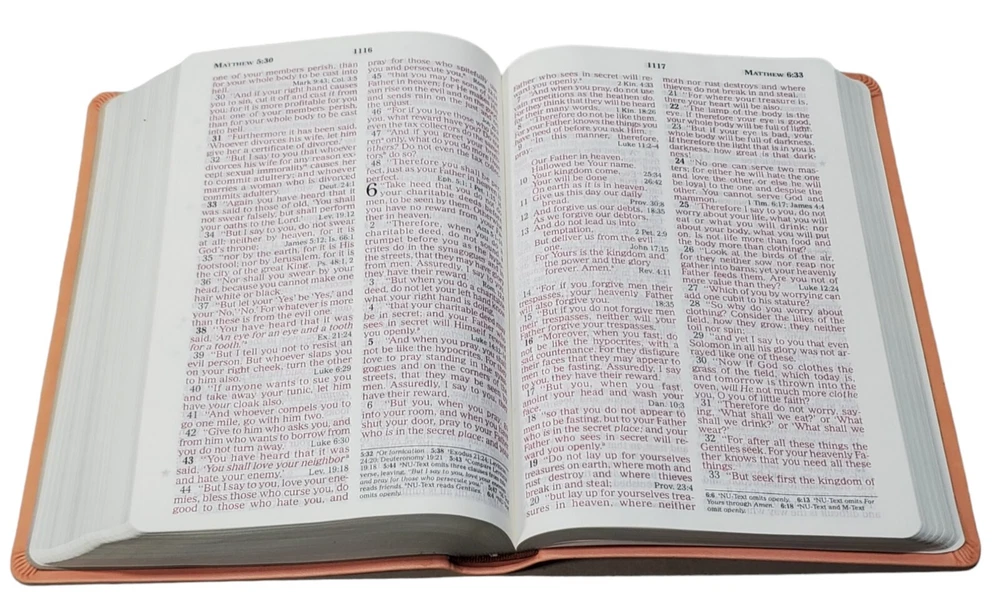 MATTHEW 5:30
1116
one of your members perish, than
for your whole body to be cast into
hell. Mark 9:43; Col. 3:5
30 "And if your right hand causes
you to sin, cut it off and cast it from
you; for it is more profitable for you
that one of your members perish,
than for your whole body to be cast
into hell.
31 "Furthermore it has been said,
'Whoever divorces his wife, let him
give her a certificate of divorce.'
32 "But I say to you that whoever
divorces his wife for any reason ex-
cept sexual immorality causes her
to commit adultery; and whoever
marries a woman who is divorced
commits adultery. Deut. 24:1
33 "Again you have heard that it
was said to those of old, 'You shall
not swear falsely, but shall perform
your oaths to the Lord.' Lev. 19:12
34 "But I say to you, do not swear
at all: neither by heaven, for it is
God's throne; James 5:12; Is. 66:1
35 "nor by the earth, for it is His
footstool; nor by Jerusalem, for it is
the city of the great King. Ps. 48:1, 2
36 "Nor shall you swear by your
head, because you cannot make one
hair white or black.
37 "But let your 'Yes' be 'Yes,' and
your 'No,' 'No.' For whatever is more
than these is from the evil one.
38 "You have heard that it was
said, 'An eye for an eye and a tooth
for a tooth.' Ex. 21:24
39 "But I tell you not to resist an
evil person. But whoever slaps you
on your right cheek, turn the other
to him also. Luke 6:29
40 "If anyone wants to sue you
and take away your tunic, let him
have your cloak also.
41 "And whoever compels you to
go one mile, go with him two.
42 "Give to him who asks you, and
from him who wants to borrow from
you do not turn away. Luke 6:30
43 "You have heard that it was
said, 'You shall love your neighbor
and hate your enemy.' Lev. 19:18
44 "But I say to you, love your ene-
mies, bless those who curse you, do
good to those who hate you, and
pray for those who spitefully
you and persecute you,
45 "that you may be
Father in heaven; for He
sun rise on the evil and
and sends rain on the just
the unjust.
46 "For if you love those
you, what reward have you
the tax collectors do the
47 "And if you greet your
only, what do you do more
others? Do not even the tax
tors do so?
48 "Therefore you shall be
fect, just as your Father in
perfect.
6 "Take heed that you do
your charitable deeds
men, to be seen by them. Other
you have no reward from your
ther in heaven.
2 "Therefore, when you
charitable deed, do not sound
trumpet before you as the hypo-
crites do in the synagogues and
the streets, that they may have
from men. Assuredly, I say to
they have their reward.
3 "But when you do a charitable
deed, do not let your left hand
what your right hand is doing
4 "that your charitable deed
be in secret; and your Father
sees in secret will Himself
you openly. Luke
5 "And when you pray, you
not be like the hypocrites. For
love to pray standing in the
gogues and on the corners of
streets, that they may be seen
men. Assuredly, I say to you,
have their reward.
6 "But you, when you pray
into your room, and when you
shut your door, pray to your
who is in the secret place; and
5:32 Or fornication 5:38 Exodus 21:24;
24:20; Deuteronomy 19:21 5:43
19:18 5:44 NU-Text omits three clauses
verse, leaving, "But I say to you, love your
and pray for those who persecute you."
reads friends. NU-Text reads Gentiles.
omits openly.
1117
MATTHEW 6:33
ther who sees in secret will re-
ward you openly. 2 Kin. 4:33
"And when you pray, do not use
vain repetitions as the heathen do.
they think that they will be heard
their many words. 1 Kin. 18:26
"Therefore do not be like them.
your Father knows the things you
have need of before you ask Him.
"In this manner, therefore,
pray: Luke 11:2-4
Our Father in heaven,
Hallowed be Your name.
10 Your kingdom come. 25:34
Your will be done 26:42
On earth as it is in heaven.
11 Give us this day our daily
bread. Prov. 30:8
12 And forgive us our debts, 18:35
As we forgive our debtors.
13 And do not lead us into
temptation, 2 Pet. 2:9
But deliver us from the evil one.
John 17:15
For Yours is the kingdom and
the power and the glory
forever. Amen. Rev. 4:11
14 "For if you forgive men their
trespasses, your heavenly Father
will also forgive you. 18:35
15 "But if you do not forgive men
their trespasses, neither will your
Father forgive your trespasses.
16 "Moreover, when you fast, do
not be like the hypocrites, with a
sad countenance. For they disfigure
their faces that they may appear to
men to be fasting. Assuredly, I say
to you, they have their reward.
17 "But you, when you fast,
anoint your head and wash your
face, Dan. 10:3
18 "so that you do not appear to
men to be fasting, but to your Father
who is in the secret place; and your
Father who sees in secret will re-
ward you openly.
19 "Do not lay up for yourselves
treasures on earth, where moth and
rust destroy and where thieves
break in and steal; Prov. 23:4
20 "but lay up for yourselves trea-
sures in heaven, where neither
moth nor rust destroys and where
thieves do not break in and steal.
21 "For where your treasure is,
there your heart will be also.
22 "The lamp of the body is the
eye. If therefore your eye is good,
your whole body will be full of light.
23 "But if your eye is bad, your
whole body will be full of darkness.
If therefore the light that is in you is
darkness, how great is that dark-
ness!
24 "No one can serve two mas-
ters; for either he will hate the one
and love the other, or else he will
be loyal to the one and despise the
other. You cannot serve God and
mammon. 1 Tim. 6:17; James 4:4
25 "Therefore I say to you, do not
worry about your life, what you will
eat or what you will drink; nor
about your body, what you will put
on. Is not life more than food and
the body more than clothing?
26 "Look at the birds of the air,
for they neither sow nor reap nor
gather into barns; yet your heavenly
Father feeds them. Are you not of
more value than they? Luke 12:24
27 "Which of you by worrying can
add one cubit to his stature?
28 "So why do you worry about
clothing? Consider the lilies of the
field, how they grow: they neither
toil nor spin;
29 "and yet I say to you that even
Solomon in all his glory was not ar-
rayed like one of these.
30 "Now if God so clothes the
grass of the field, which today is,
and tomorrow is thrown into the
oven, will He not much more clothe
you, O you of little faith?
31 "Therefore do not worry, say-
ing, 'What shall we eat?' or 'What
shall we drink?' or 'What shall we
wear?'
32 "For after all these things the
Gentiles seek. For your heavenly Fa-
ther knows that you need all these
things.
33 "But seek first the kingdom of
6:6 NU-Text omits openly. 6:13 NU-Text omits For
Yours through Amen. 6:18 NU-Text and M-Text
omit openly.